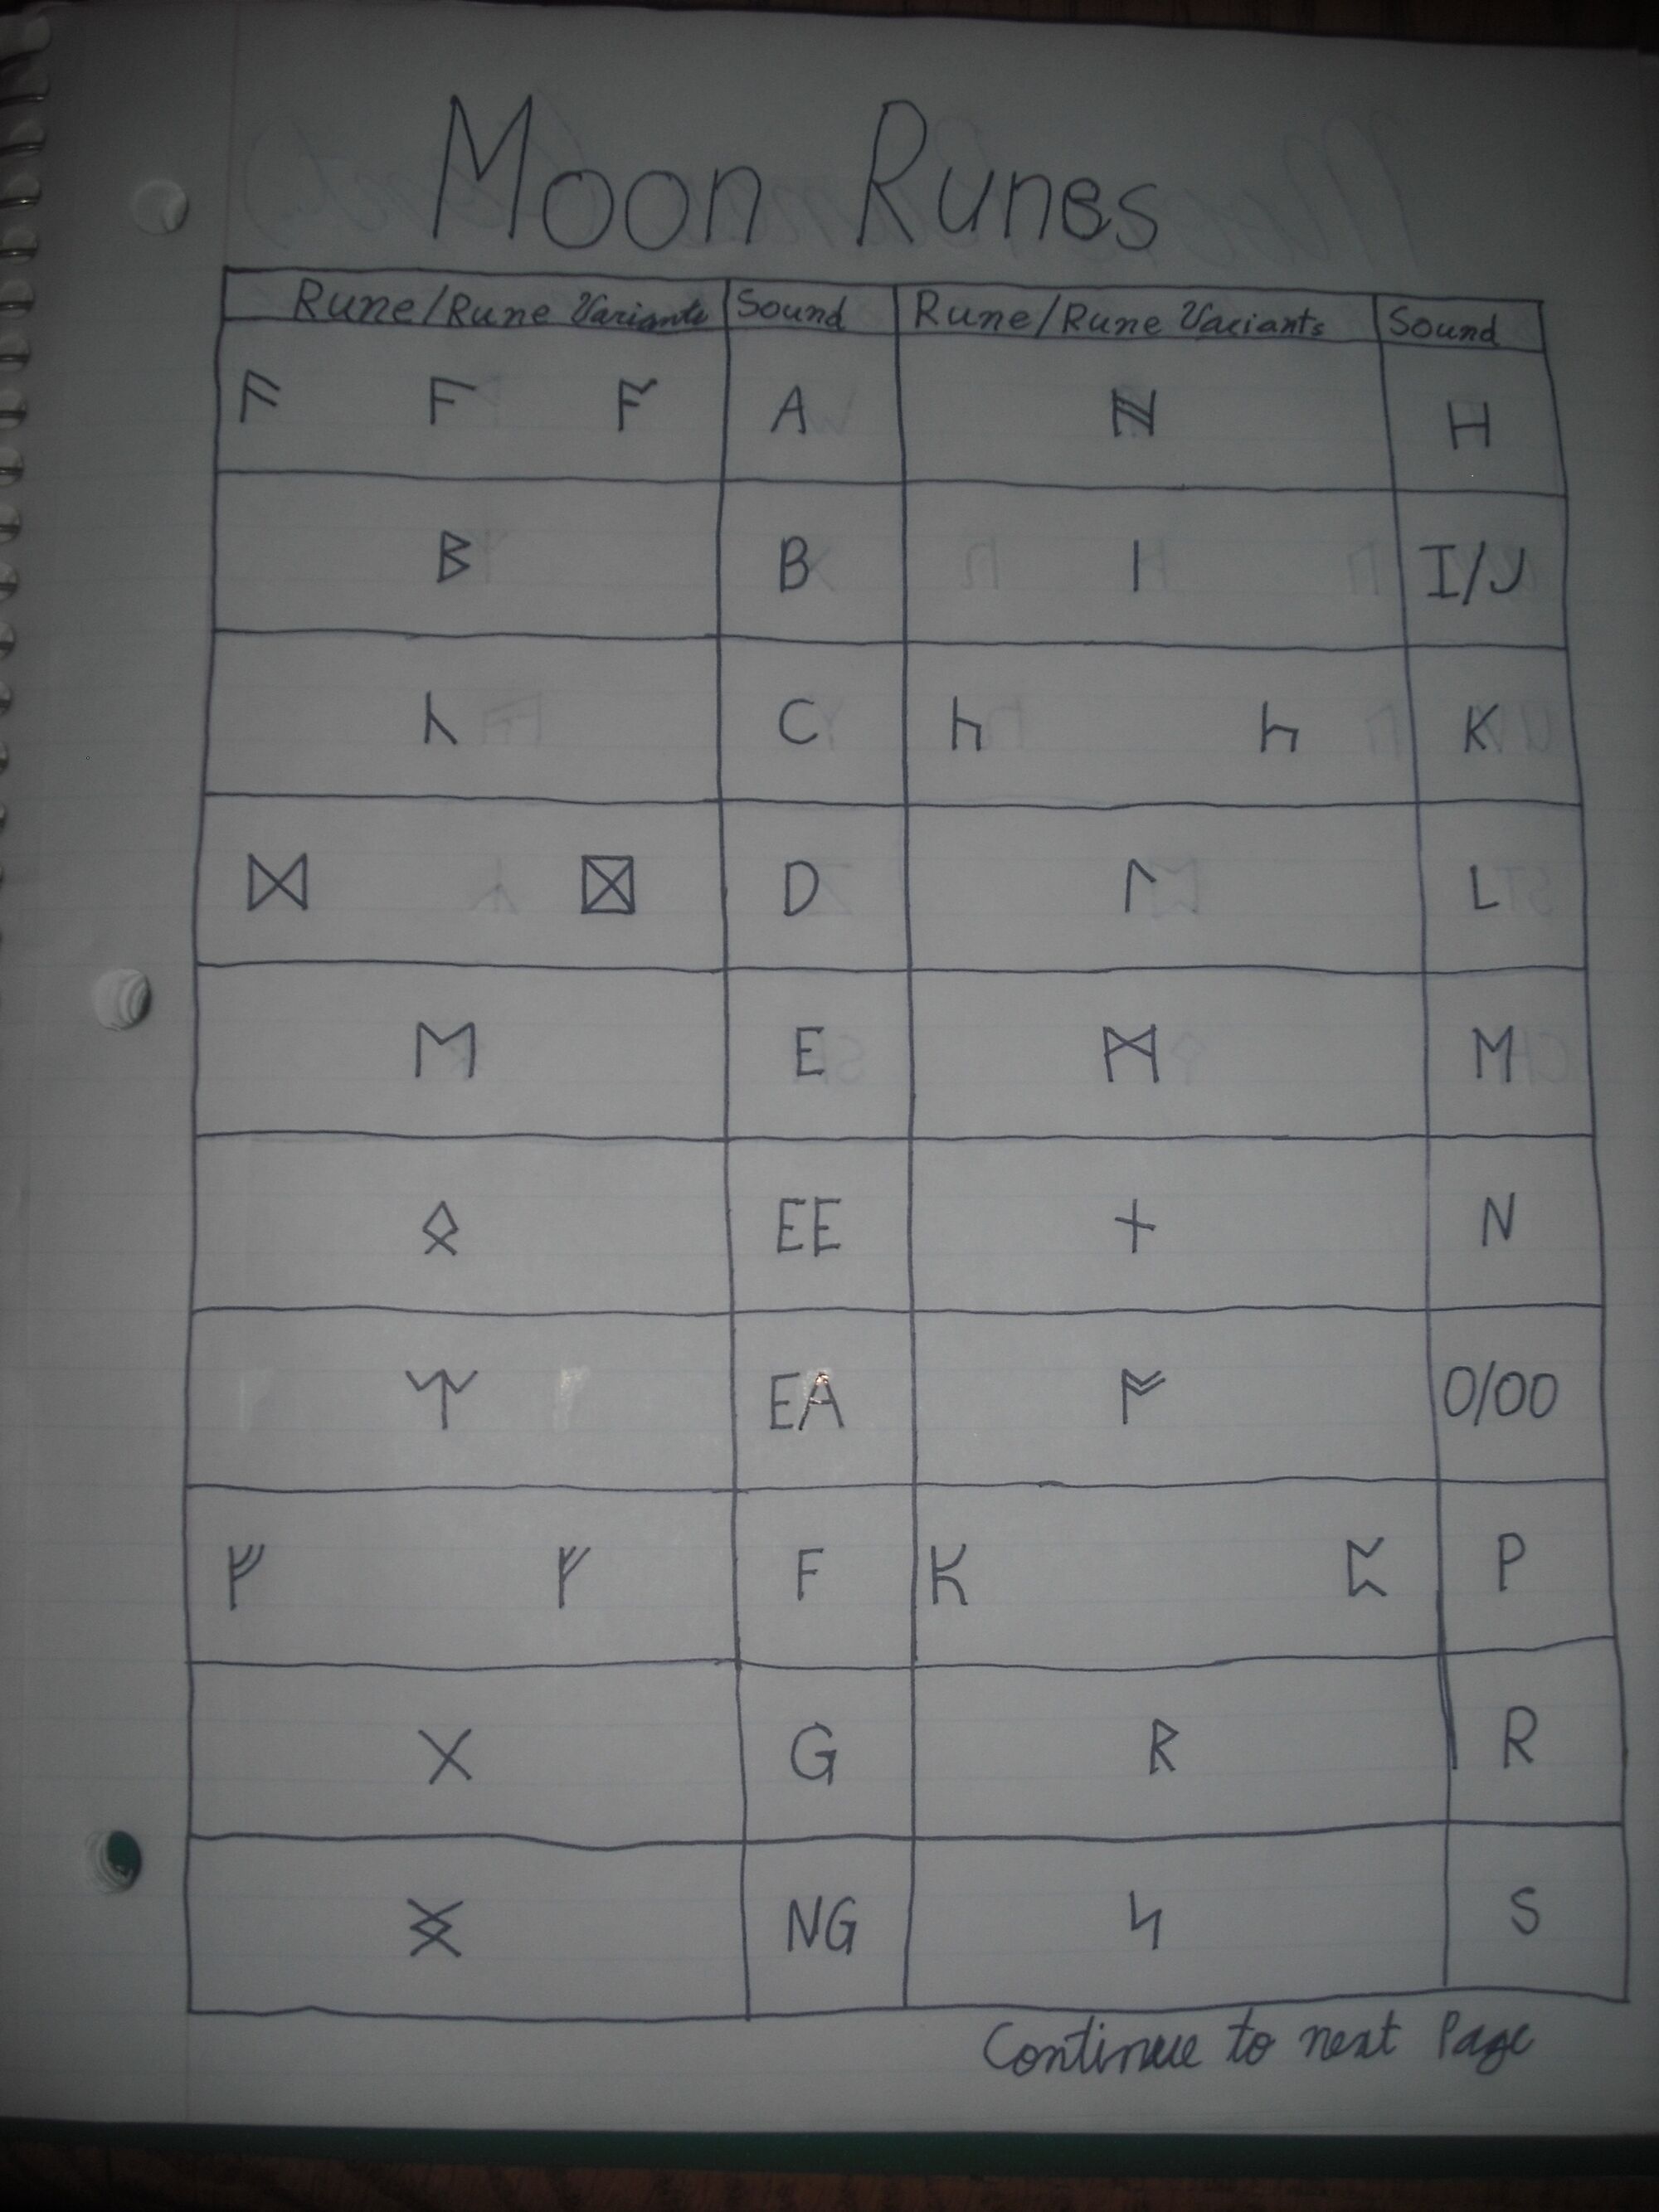 Moon Runes
Rune/Rune Variants Sound Rune/Rune Variants Sound
ᚫ ᚨ A ᚻ H
ᛒ B ᛁ I/J
ᚳ C K
ᛞ D ᛚ L
ᛖ E ᛗ M
ᛟ EE ᚾ N
EA ᚩ O/OO
ᚠ ᚠ F ᛈ P
ᚷ G ᚱ R
ᛝ NG ᛋ S
Continue to next Page